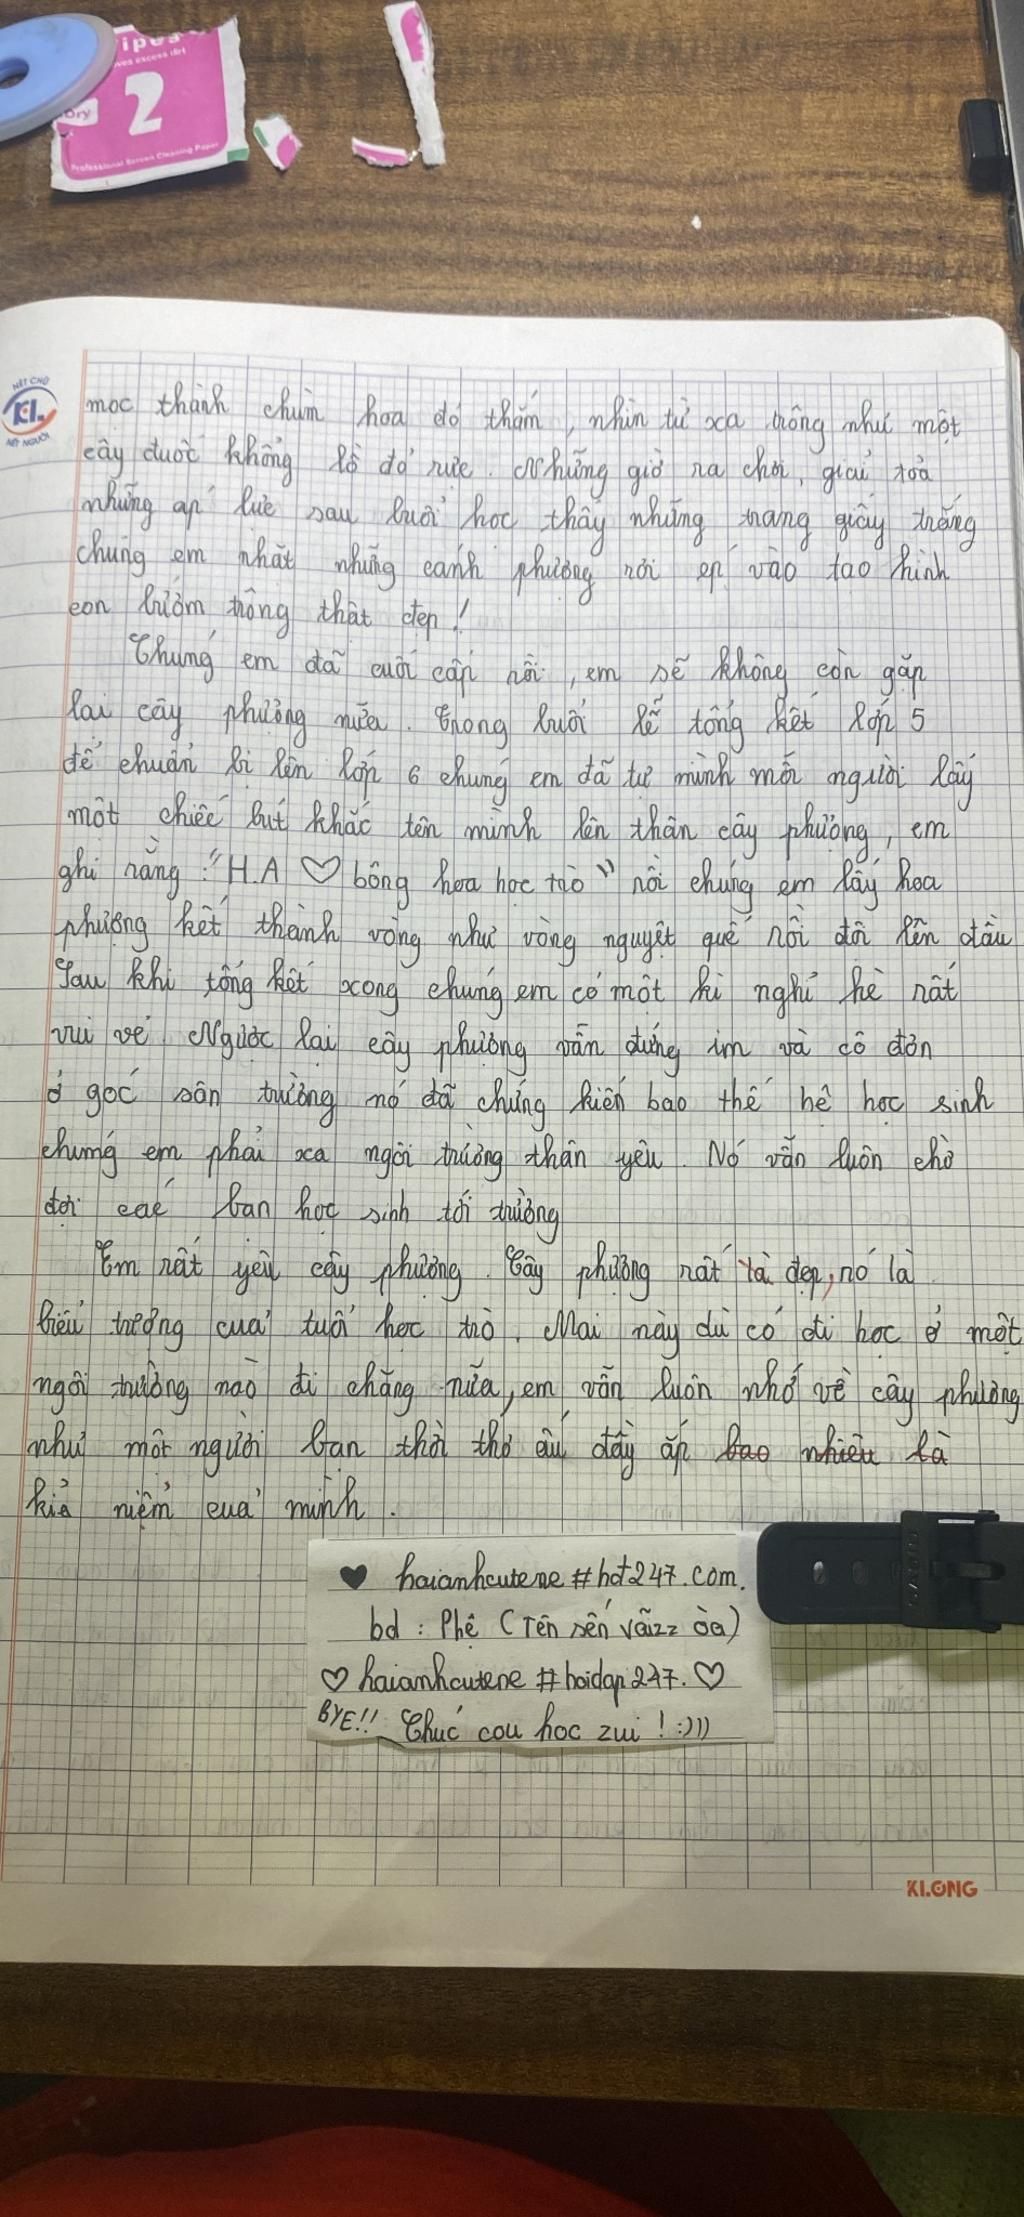 ipes
ves excess dirt
Dry
2
Professional Screen Cleaning Paper
NÉT CHỮ
KL
NẾT NGƯỜI
mọc thành chùm hoa đỏ thắm, nhìn từ xa trông như một
cây đuốc khổng lồ đỏ rực. Những giờ ra chơi, giải tỏa
những áp lực sau buổi học thấy những trang giấy trắng
chúng em nhặt những cánh phượng rồi ép vào tạo hình
con bướm trông thật đẹp!
Chúng em đã cuối cấp rồi, em sẽ không còn gặp
lại cây phượng nữa. Trong buổi lễ tổng kết lớp 5
để chuẩn bị lên lớp 6 chúng em đã tự mình mỗi người lấy
một chiếc bút khắc tên mình lên thân cây phượng, em
ghi rằng: "H.A ♡ bông hoa học trò" rồi chúng em lấy hoa
phượng kết thành vòng như vòng nguyệt quế rồi đội lên đầu
Sau khi tổng kết xong chúng em có một kì nghỉ hè rất
vui vẻ. Ngược lại cây phượng vẫn đứng im và cô đơn
ở góc sân trường nó đã chứng kiến bao thế hệ học sinh
chúng em phải xa ngôi trường thân yêu. Nó vẫn luôn chờ
đợi các bạn học sinh tới trường
Em rất yêu cây phượng. Cây phượng rất là đẹp, nó là
biểu tượng của tuổi học trò. Mai này dù có đi học ở một
ngôi trường nào đi chăng nữa, em vẫn luôn nhớ về cây phượng
như một người bạn thời thơ ấu đầy ắp bao nhiêu là
kỉ niệm của mình.
♥ haianhcutene #hdt247.com.
bd: Phệ (Tên sến vãizz òa)
♡ haianhcutene #hoidap247. ♡
BYE!! Chúc cou học zui! :)))
KLONG